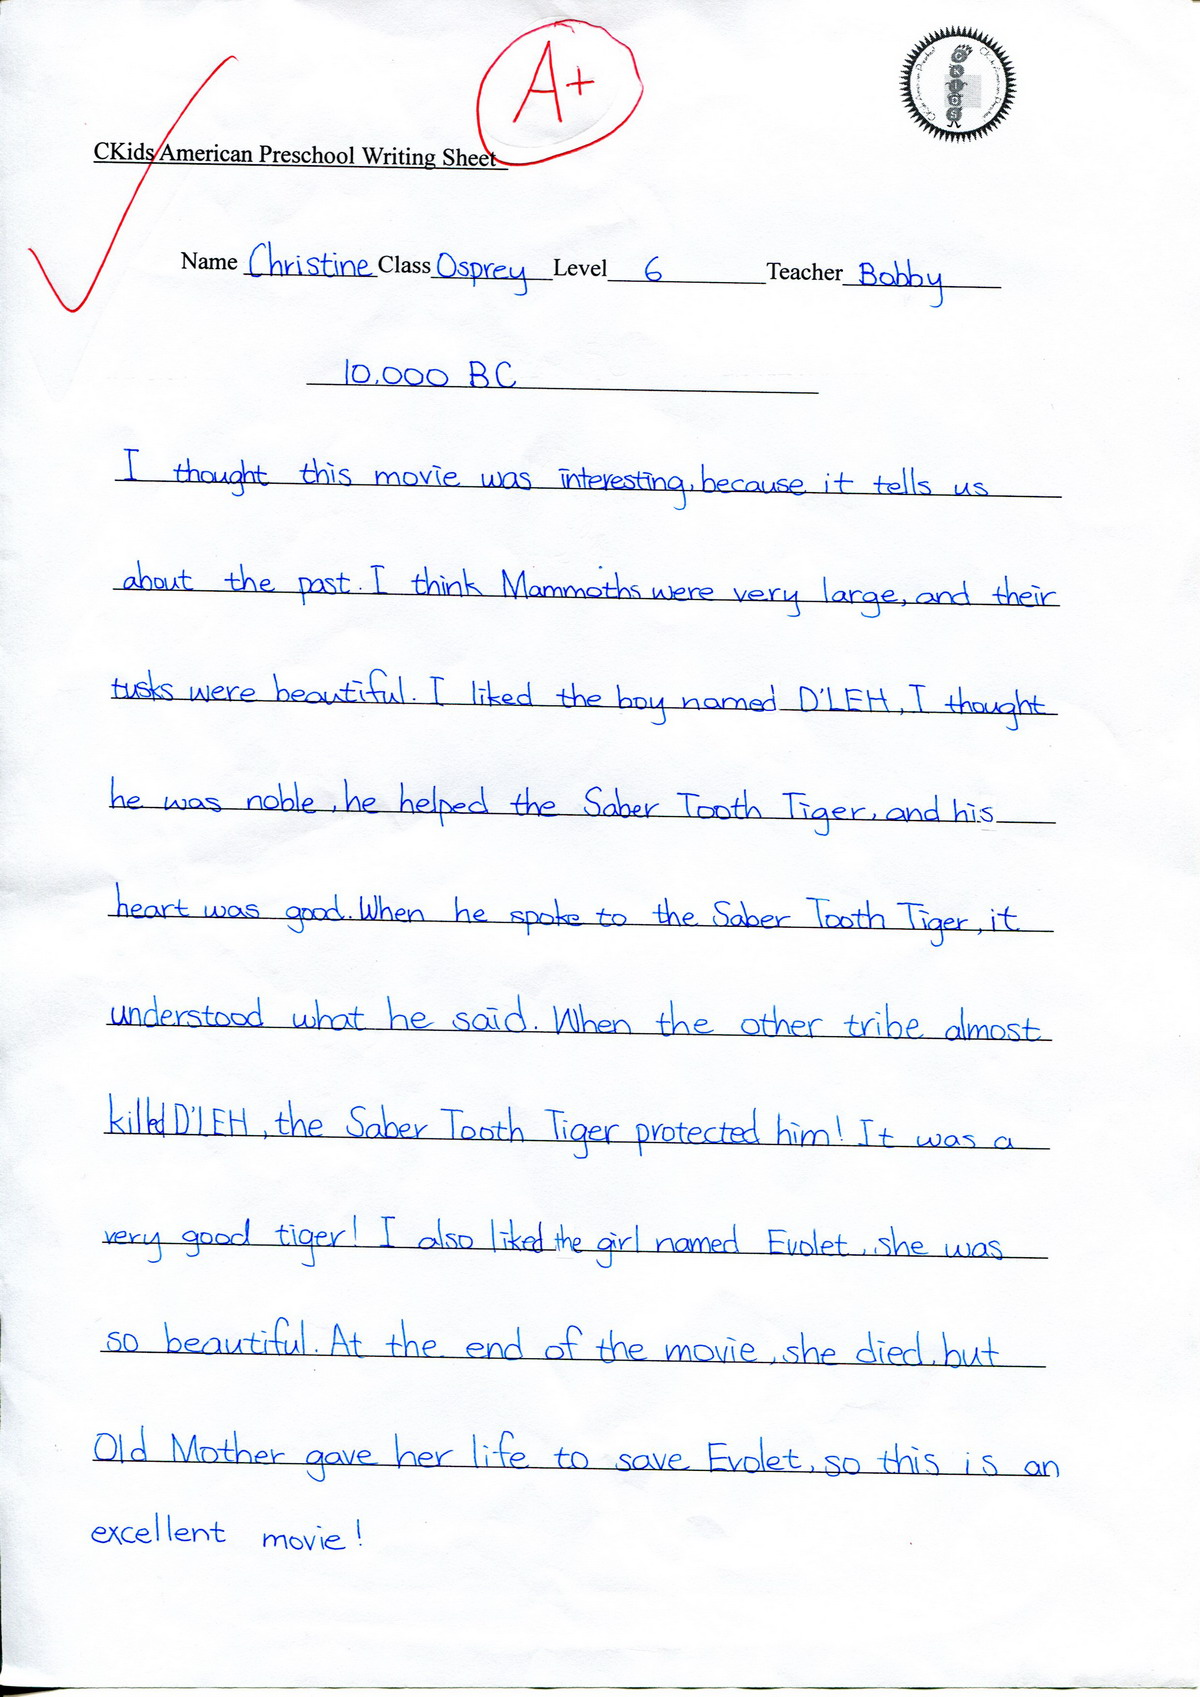 A+
CKids American Preschool Writing Sheet
Name Christine Class Osprey Level 6 Teacher Bobby
10.000 BC
I thought this movie was interesting, because it tells us
about the past. I think Mammoths were very large, and their
tusks were beautiful. I liked the boy named D'LEH, I thought
he was noble, he helped the Saber Tooth Tiger, and his
heart was good. When he spoke to the Saber Tooth Tiger, it
understood what he said. When the other tribe almost
killed D'LEH, the Saber Tooth Tiger protected him! It was a
very good tiger! I also liked the girl named Evolet, she was
so beautiful. At the end of the movie, she died, but
Old Mother gave her life to save Evolet, so this is an
excellent movie!